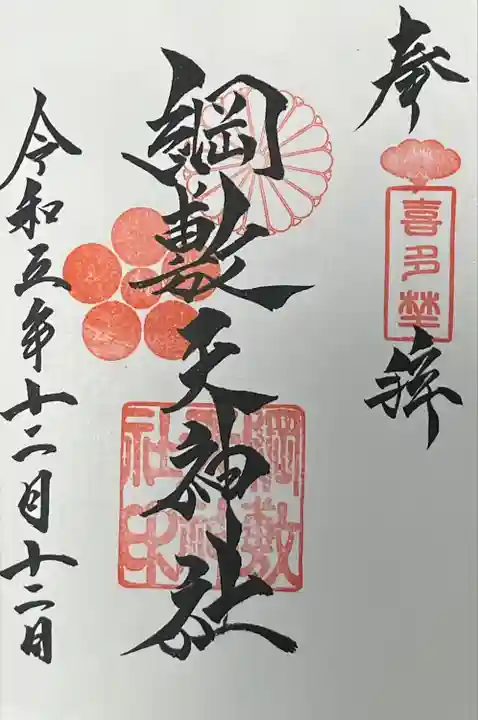 奉拝
喜多埜
綱敷天神社
令和五年十二月十二日